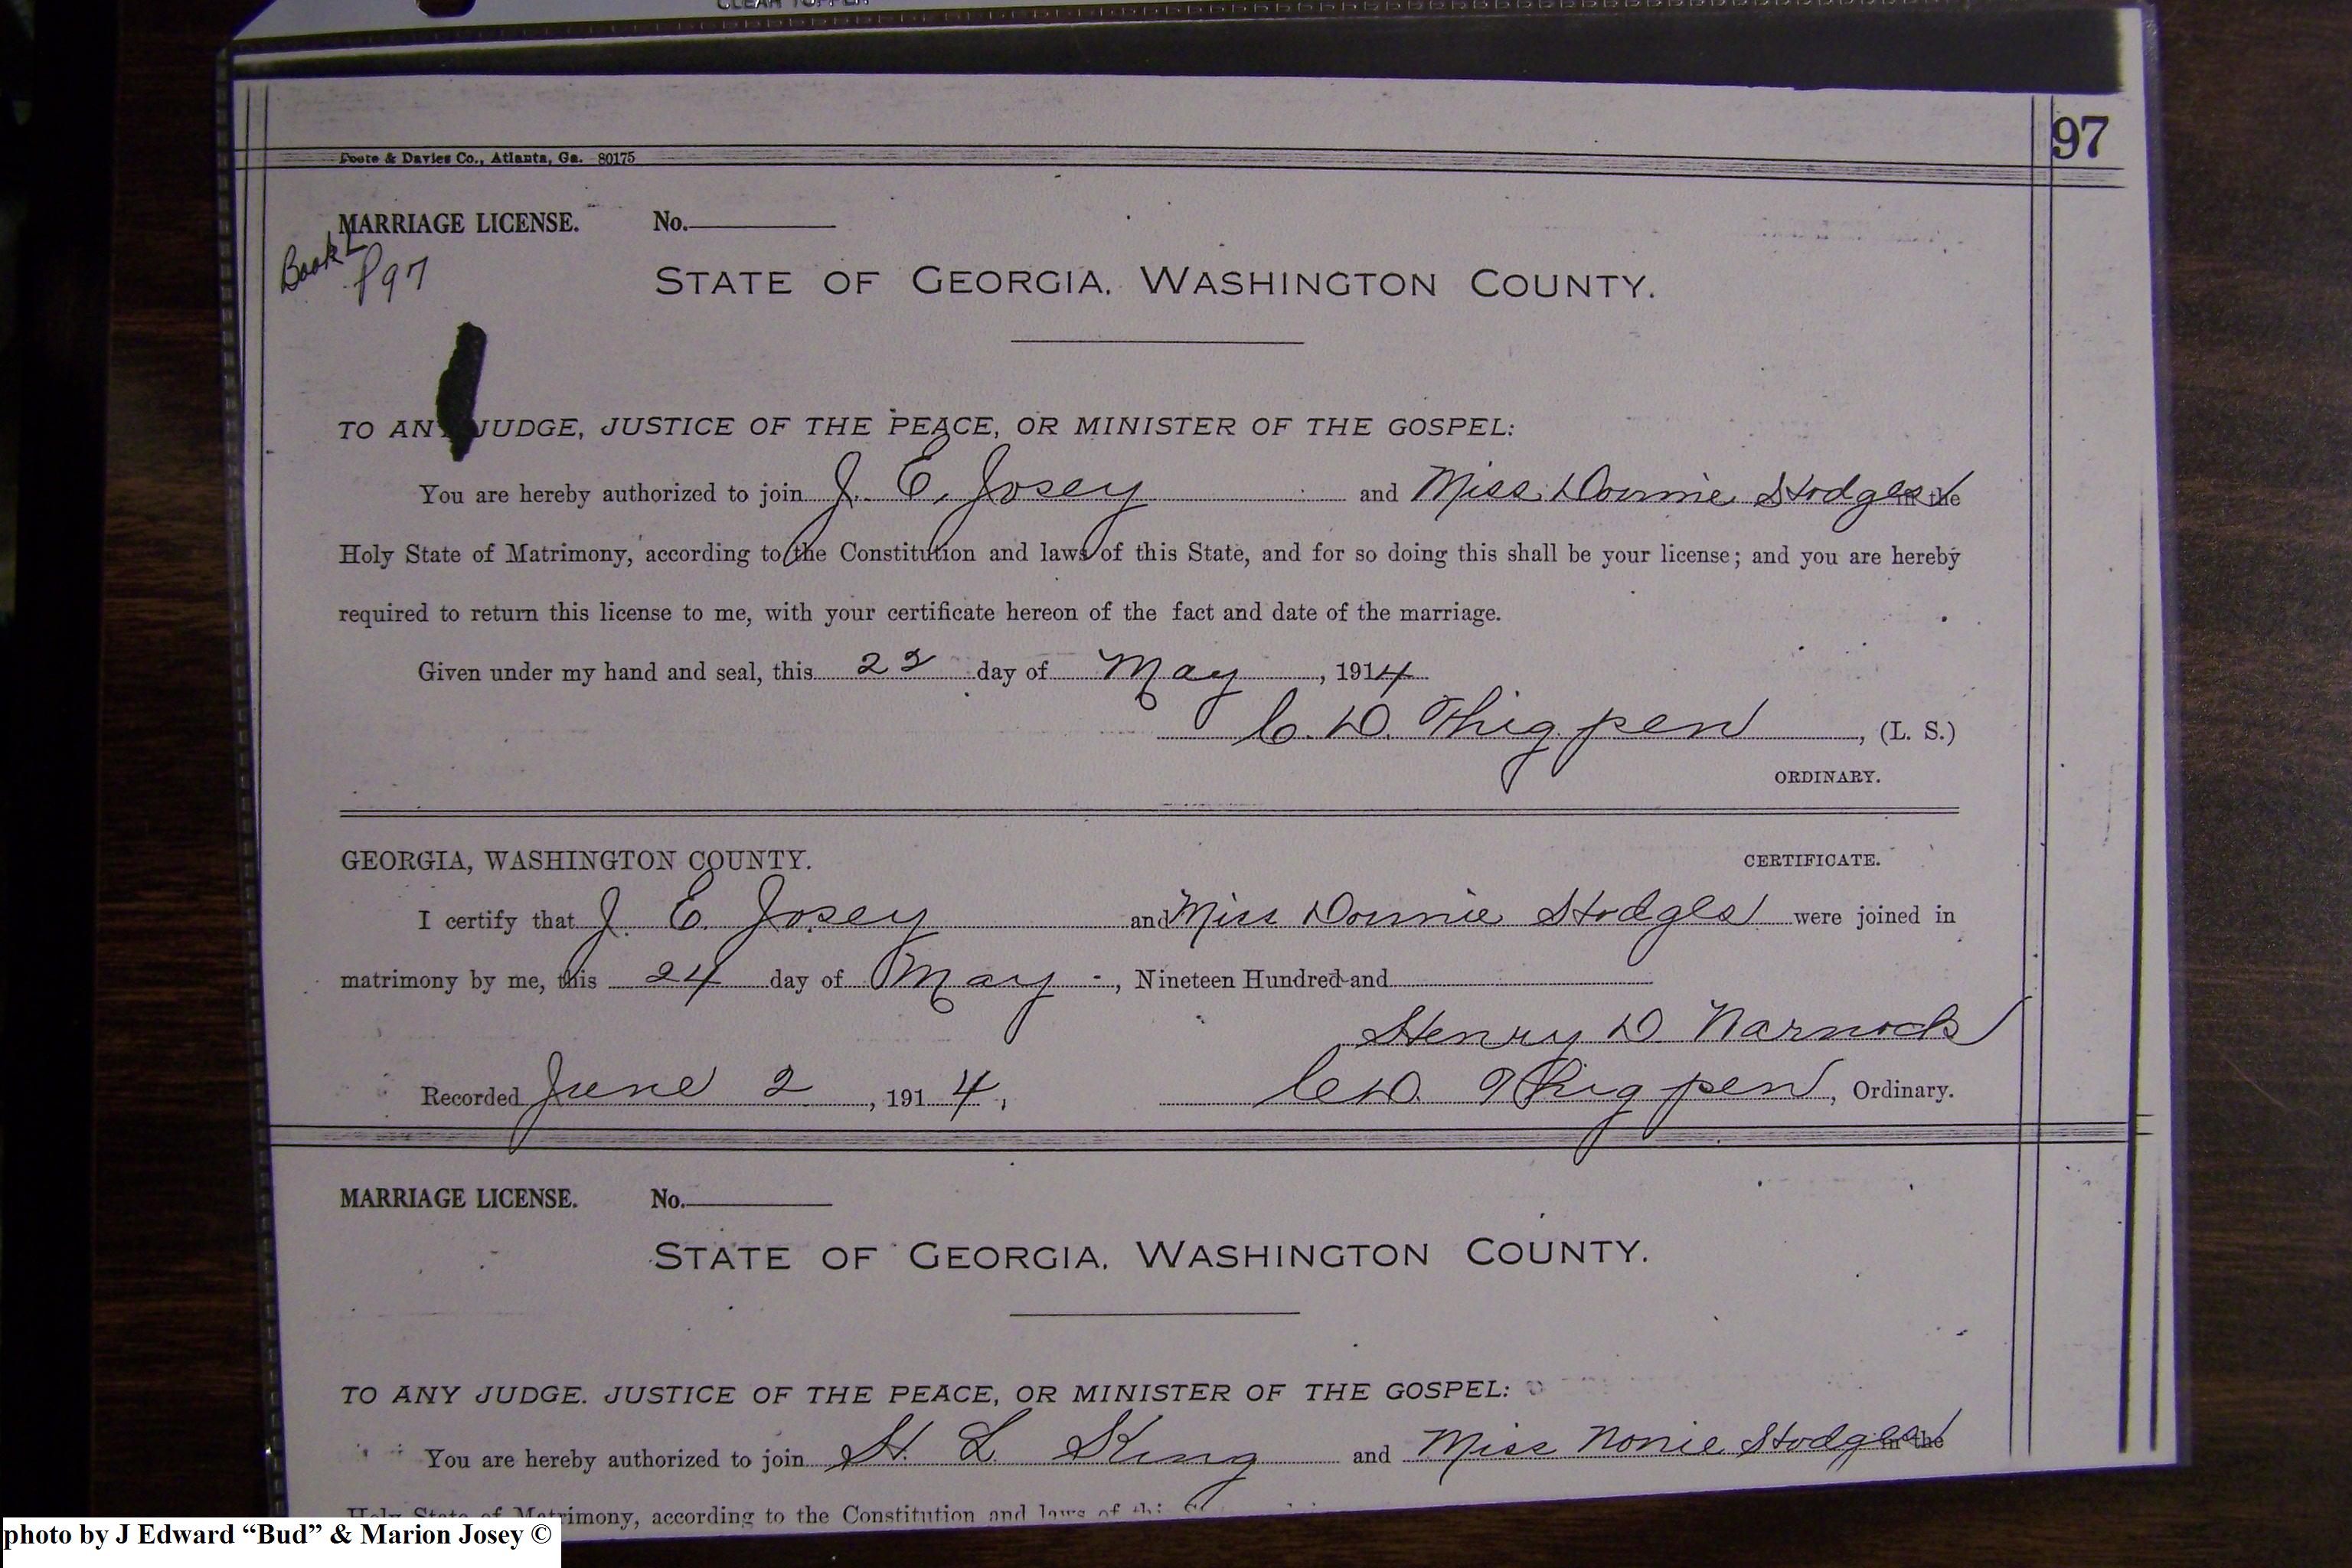 CLEAR TOPPER
97
Foote & Davies Co., Atlanta, Ga. 80175
MARRIAGE LICENSE. No.
Book L
P 97
STATE OF GEORGIA, WASHINGTON COUNTY.
TO ANY JUDGE, JUSTICE OF THE PEACE, OR MINISTER OF THE GOSPEL:
You are hereby authorized to join J. E. Josey and Miss Donnie Hodges in the
Holy State of Matrimony, according to the Constitution and laws of this State, and for so doing this shall be your license; and you are hereby
required to return this license to me, with your certificate hereon of the fact and date of the marriage.
Given under my hand and seal, this 22 day of May, 1914
C. D. Thigpen, (L. S.)
ORDINARY.
GEORGIA, WASHINGTON COUNTY. CERTIFICATE.
I certify that J. E. Josey and Miss Donnie Hodges were joined in
matrimony by me, this 24 day of May -, Nineteen Hundred and
Henry D. Warnock
Recorded June 2, 1914, C. D. Thigpen, Ordinary.
MARRIAGE LICENSE. No.
STATE OF GEORGIA, WASHINGTON COUNTY.
TO ANY JUDGE. JUSTICE OF THE PEACE, OR MINISTER OF THE GOSPEL:
You are hereby authorized to join H. L. King and Miss Nonie Hodges in the
Holy State of Matrimony, according to the Constitution and laws of this
photo by J Edward “Bud” & Marion Josey ©